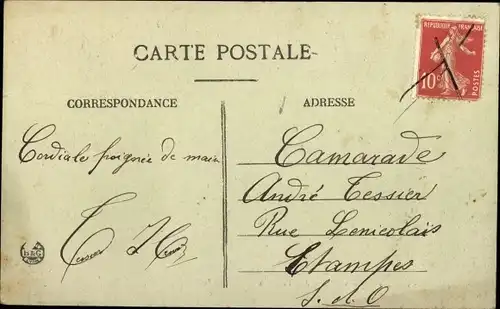 CARTE POSTALE
RÉPUBLIQUE FRANÇAISE
10c
POSTES
CORRESPONDANCE
ADRESSE
Cordiale poignée de main
Camarade
André Tessier
Rue
Etampes
S. et O